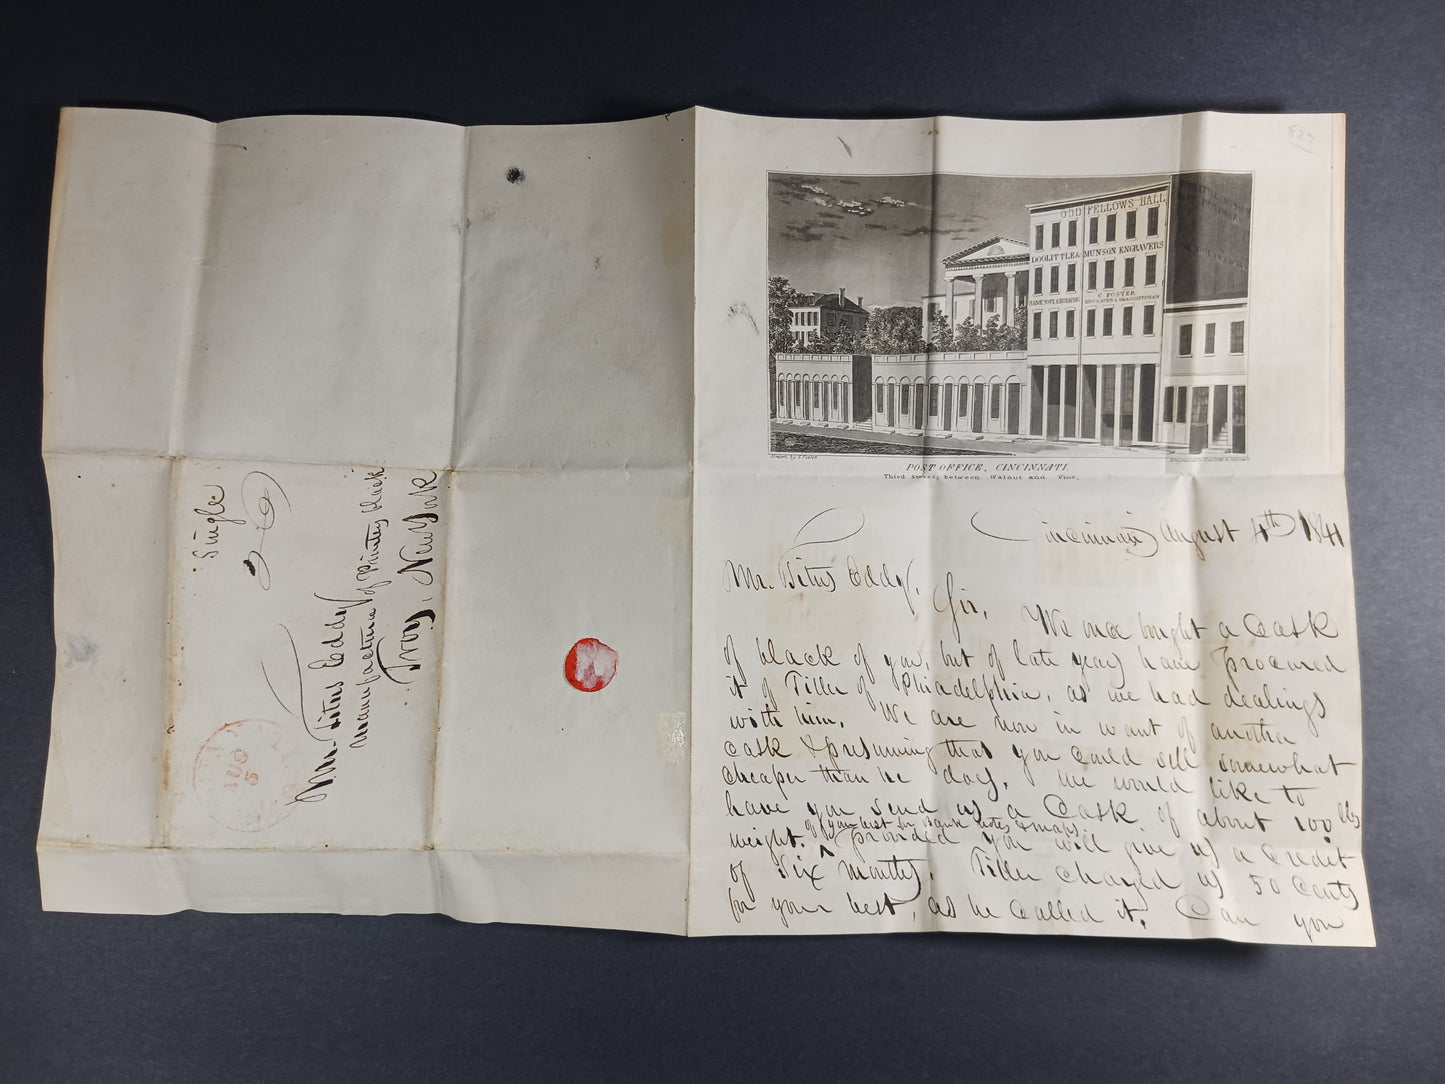 Single
Mr. Titus Eddy
Manufacturer of Printing Black
Troy, New York
AUG
5
829
ODD FELLOWS HALL
DOOLITTLE & MUNSON ENGRAVERS
BANK NOTE ENGRAVING
C. FOSTER
ENGRAVER & DRAUGHTSMAN
Drawn by C. Foster
POST OFFICE, CINCINNATI.
Third street, between Walnut and Vine.
Cincinnati August 4th 1841
Mr. Titus Eddy,
Sir, We once bought a Cask
of black of you, but of late years have procured
it of Tiller of Philadelphia, as we had dealings
with him. We are now in want of another
cask & presuming that you could sell somewhat
cheaper than he does, we would like to
have you send us a Cask of about 100 lbs
weight. of your best for Bank notes & maps provided you will give us a credit
of Six months. Tiller charged us 50 Cents
for your best, as he called it. Can you